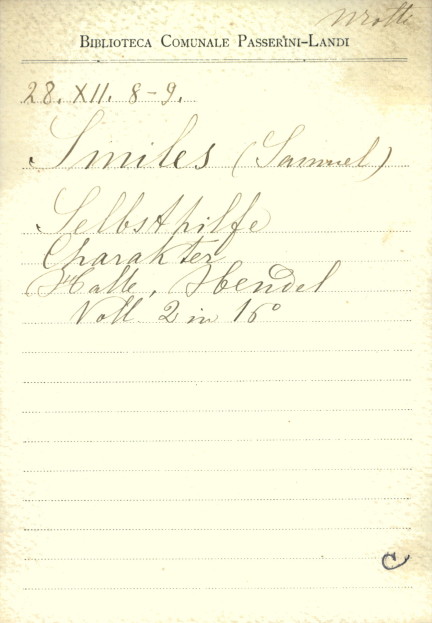 BIBLIOTECA COMUNALE PASSERINI-LANDI
28. XII. 8-9.
Smiles (Samuel)
Selbsthilfe
Charakter
Halle, Hendel
Voll 2 in 16º
C